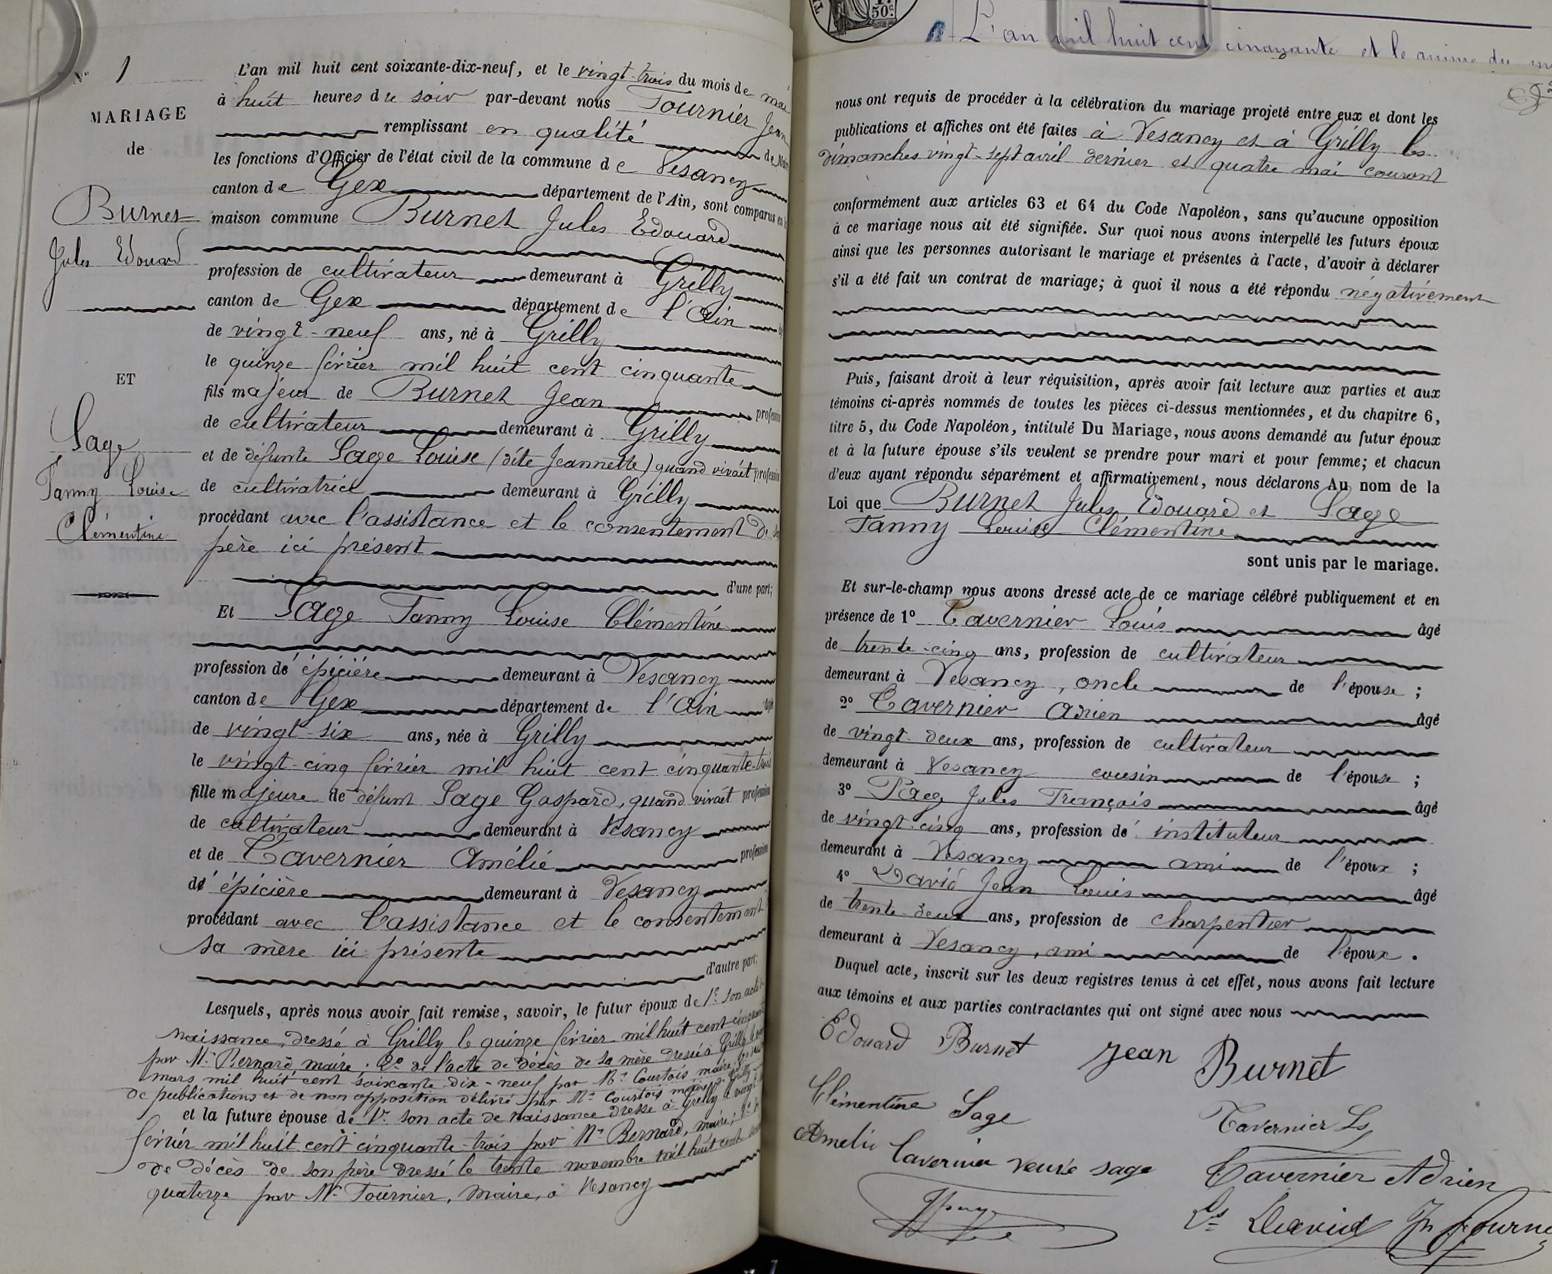 N° 1
MARIAGE
de
Burnet
Jules Edouard
ET
Sage
Fanny Louise
Clémentine
L'an mil huit cent soixante-dix-neuf, et le vingt-trois du mois de mai
à huit heures du soir par-devant nous Fournier Jean
remplissant en qualité de
les fonctions d'Officier de l'état civil de la commune de Vesancy
canton de Gex département de l'Ain, sont comparus en
maison commune Burnet Jules Edouard
profession de cultivateur demeurant à Grilly
canton de Gex département de l'Ain
de vingt-neuf ans, né à Grilly
le quinze février mil huit cent cinquante
fils majeur de Burnet Jean profession
de cultivateur demeurant à Grilly
et de défunte Sage Louise (dite Jeannette) quand vivait profession
de cultivatrice demeurant à Grilly
procédant avec l'assistance et le consentement de
père ici présent
d'une part;
Et Sage Fanny Louise Clémentine
profession de épicière demeurant à Vesancy
canton de Gex département de l'Ain
de vingt-six ans, née à Grilly
le vingt-cinq février mil huit cent cinquante-trois
fille majeure de défunt Sage Gaspard, quand vivait profession
de cultivateur demeurant à Vesancy
et de Tavernier Amélie profession
de épicière demeurant à Vesancy
procédant avec l'assistance et le consentement
sa mère ici présente
d'autre part;
Lesquels, après nous avoir fait remise, savoir, le futur époux de 1° son acte
naissance, dressé à Grilly le quinze février mil huit cent cinquante
par Mr Bernard, maire; 2° de l'acte de décès de sa mère dressé à Grilly le
mars mil huit cent soixante-dix-neuf par Mr Courtois maire;
de publications et de non opposition délivré par Mr Courtois maire
et la future épouse de 1° son acte de naissance dressé à Grilly le vingt
février mil huit cent cinquante-trois par Mr Bernard, maire; 2°
de décès de son père dressé le trente novembre mil huit cent
quatorze par Mr Fournier, Maire, à Vesancy
L'an mil huit cent cinquante et le
nous ont requis de procéder à la célébration du mariage projeté entre eux et dont les
publications et affiches ont été faites à Vesancy et à Grilly les
dimanches vingt-sept avril dernier et quatre mai courant
conformément aux articles 63 et 64 du Code Napoléon, sans qu'aucune opposition
à ce mariage nous ait été signifiée. Sur quoi nous avons interpellé les futurs époux
ainsi que les personnes autorisant le mariage et présentes à l'acte, d'avoir à déclarer
s'il a été fait un contrat de mariage; à quoi il nous a été répondu négativement
Puis, faisant droit à leur réquisition, après avoir fait lecture aux parties et aux
témoins ci-après nommés de toutes les pièces ci-dessus mentionnées, et du chapitre 6,
titre 5, du Code Napoléon, intitulé Du Mariage, nous avons demandé au futur époux
et à la future épouse s'ils veulent se prendre pour mari et pour femme; et chacun
d'eux ayant répondu séparément et affirmativement, nous déclarons Au nom de la
Loi que Burnet Jules Edouard et Sage
Fanny Louise Clémentine
sont unis par le mariage.
Et sur-le-champ nous avons dressé acte de ce mariage célébré publiquement et en
présence de 1° Tavernier Louis âgé
de trente-cinq ans, profession de cultivateur
demeurant à Vesancy, oncle de l'épouse;
2° Tavernier Adrien âgé
de vingt-deux ans, profession de cultivateur
demeurant à Vesancy cousin de l'épouse;
3° Jules François âgé
de vingt-cinq ans, profession de instituteur
demeurant à Vesancy ami de l'époux;
4° David Jean Louis âgé
de trente-deux ans, profession de charpentier
demeurant à Vesancy, ami de l'époux.
Duquel acte, inscrit sur les deux registres tenus à cet effet, nous avons fait lecture
aux témoins et aux parties contractantes qui ont signé avec nous
Edouard Burnet Jean Burnet
Clémentine Sage Tavernier Ls
Amélie Tavernier veuve sage Tavernier Adrien
Ls David Jn Fournier